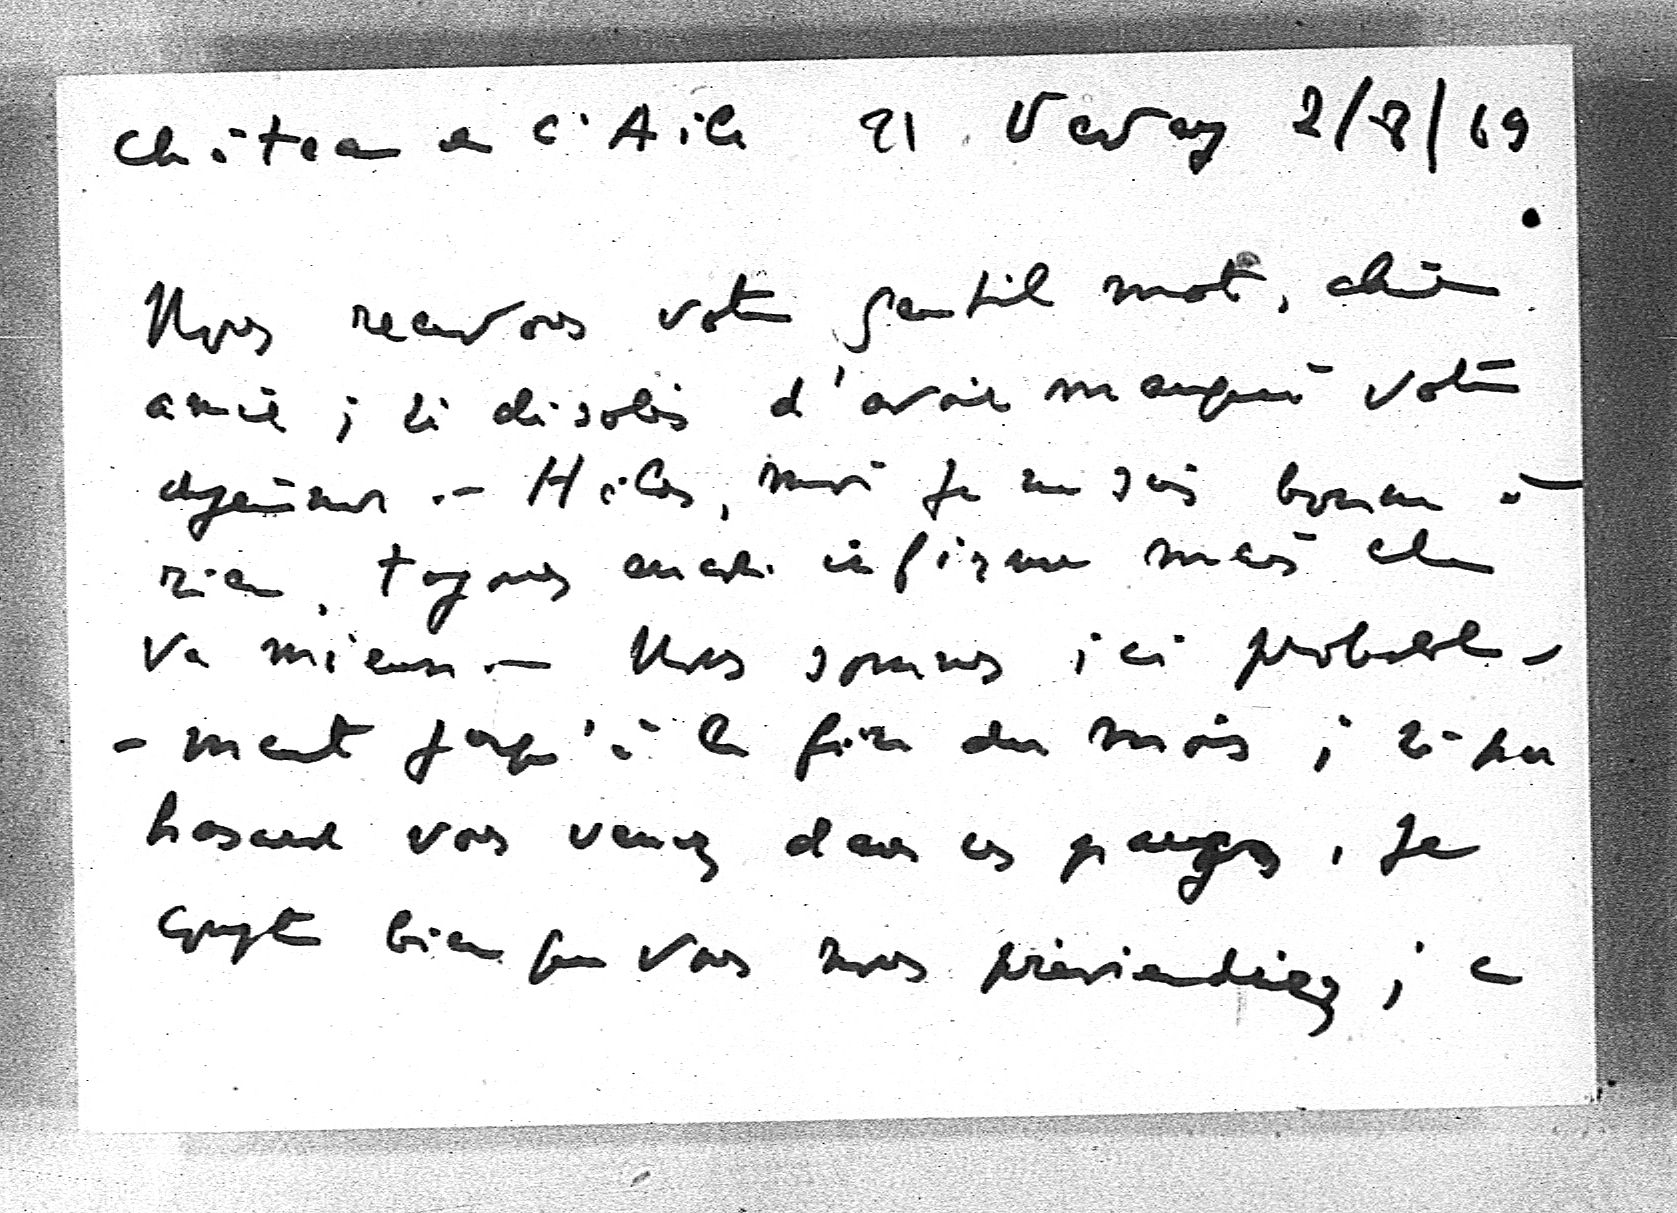 Château de l'Aile 21 Vevey 2/8/69
Nous recevons votre gentil mot, chère
amie ; si désolés d'avoir manqué votre
déjeuner. - Hélas, moi je ne suis bonne à
rien, toujours encore infirme mais cela
va mieux. - Nous sommes ici probable-
-ment jusqu'à la fin du mois ; si par
hasard vous venez dans ces parages, je
compte bien que vous nous préviendriez ; ce